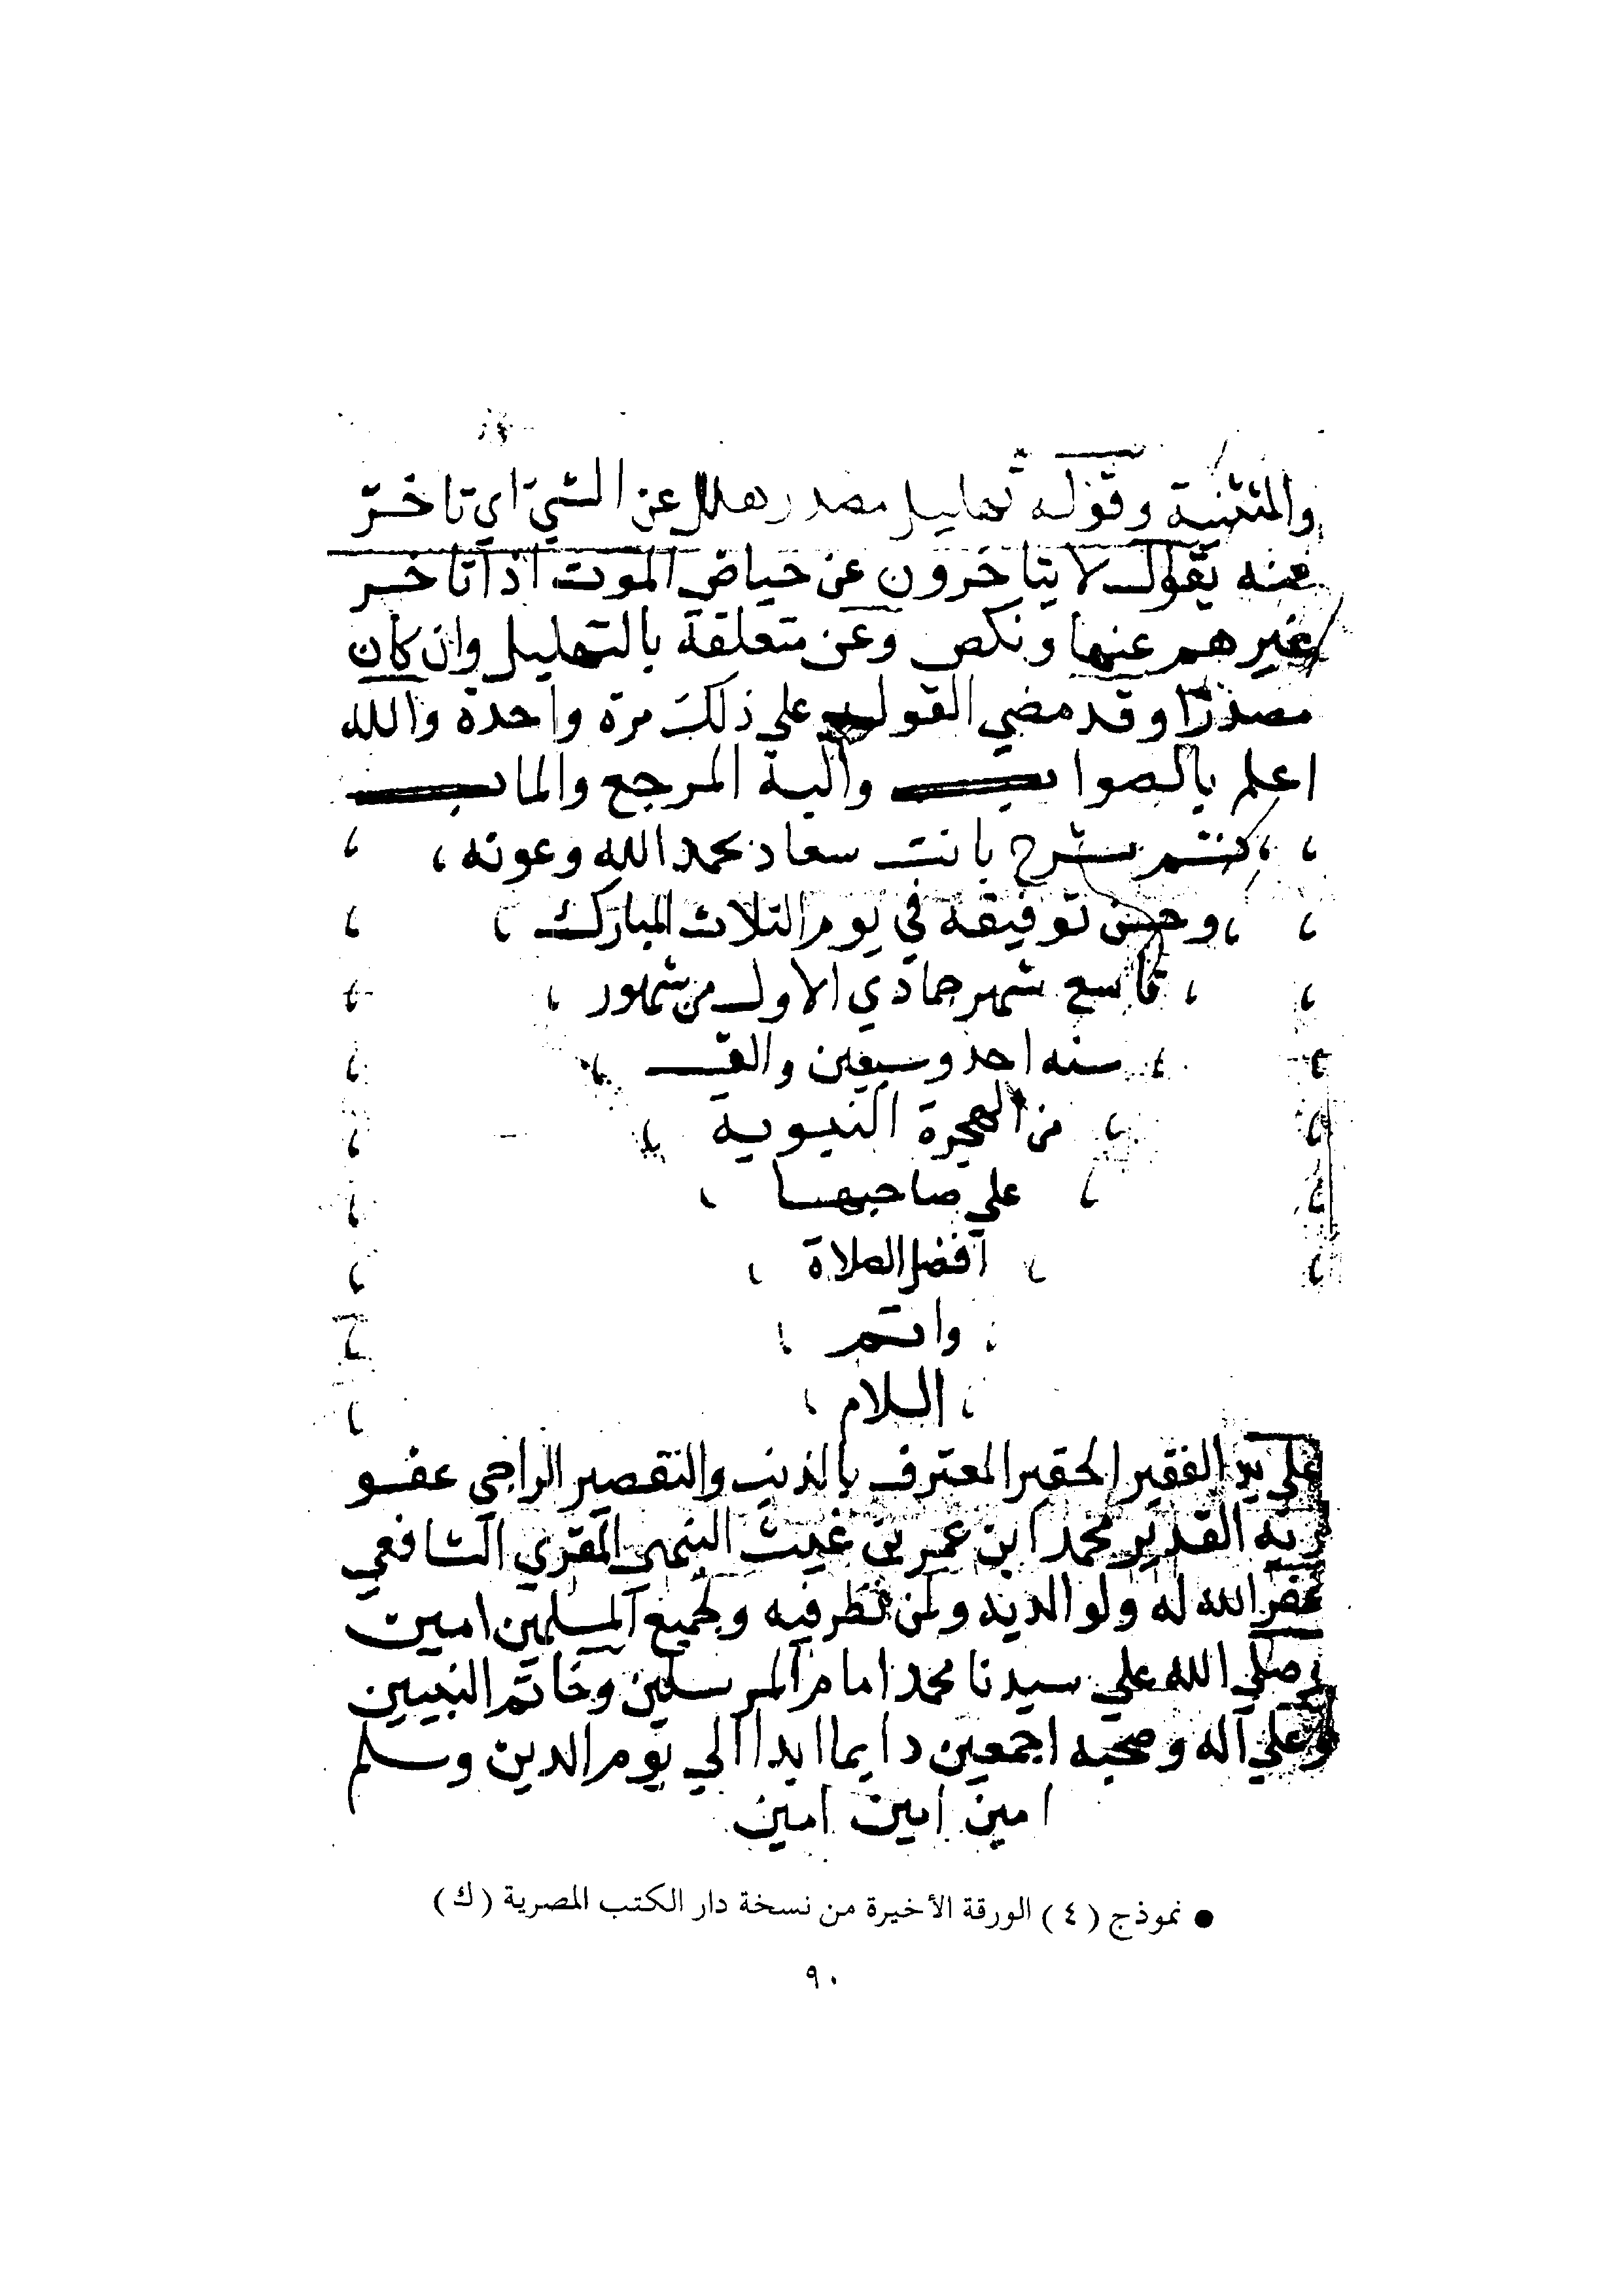 والتثنية وقوله تهليل مصدر هلل عن الشيء اي تاخر
عنه يقول لا يتاخرون عن حياض الموت اذا تاخر
غيرهم عنها ونكص وعن متعلقة بالتهليل وان كان
مصدرا وقد مضي القول علي ذلك مرة واحدة والله
اعلم بالصواب والية المرجع والماب
تم شرح بانت سعاد بحمد الله وعونه
وحسن توفيقه في يوم التلاث المبارك
تاسع شهر جمادي الاول من شهور
سنه احد وسبعين والف
من الهجرة النبوية
علي صاحبها
افضل الصلاة
واتم
السلام
علي يد الفقير الحقير المعترف بالذنب والتقصير الراجي عفو
ربه القدير محمد ابن عمر بن غيث المقري الشافعي
غفر الله له ولوالديه ولمن نظر فيه ولجميع المسلمين امين
وصلي الله علي سيدنا محمد امام المرسلين وخاتم النبيين
وعلي آله وصحبه اجمعين دايما ابدا الي يوم الدين وسلم
امين امين امين
● نموذج (٤) الورقة الأخيرة من نسخة دار الكتب المصرية (ك)
٩٠